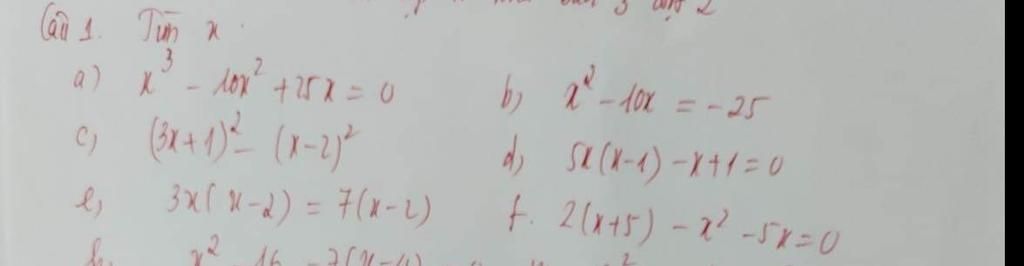 Câu 1. Tìm x.
a) x³ - 10x² + 25x = 0 b, x² - 10x = -25
c, (3x+1)² - (x-2)² d, 5x(x-1) - x+1 = 0
e, 3x(x-2) = 7(x-2) f. 2(x+5) - x² - 5x = 0